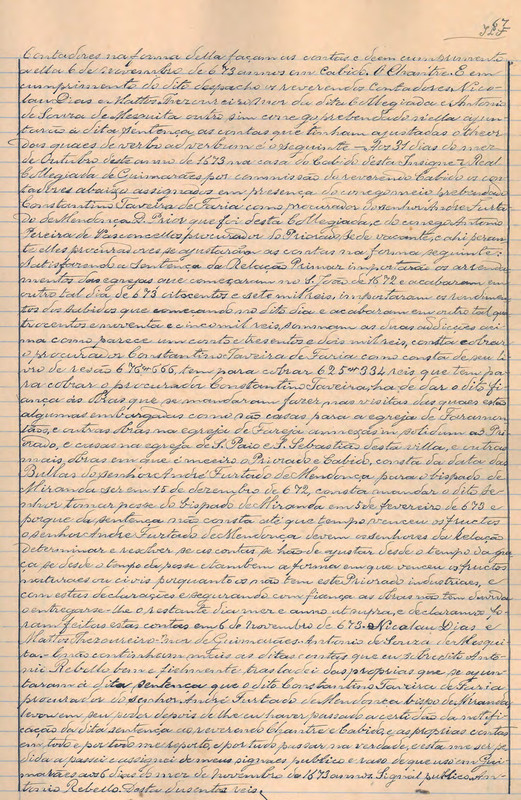 67
Contadores na forma della façam as contas e deem cumprimento
a ella 6 de novembro de 673 annos em Cabido. O Chantre. E em
cumprimento do dito despacho os reverendos Contadores Nico-
lau Dias e Mattos Thezoureiro Mor da dita Collegiada e Antonio
de Souza de Mesquita outro sim conego prebendado n'ella ajun-
tarão á dita sentença, as contas que tenham ajustadas o theor
das quaes de verbo ad verbum é o seguinte — Aos 31 dias do mez
de Outubro deste anno de 1673 na casa do Cabido desta Insigne e Real
Collegiada de Guimarães por commissão do reverendo Cabido os con-
tadores abaixo assignados em presença do conego meio prebendado
Constantino Taveira de Faria como procurador do senhor André Furta-
do de Mendonça D. Prior que foi desta Collegiada, e do conego Antonio
Pereira de Vasconcellos, procurador do Priorado, Sede vacante, e ahi peran-
te elles procuradores se ajustarão as contas na forma seguinte:
Satisfazendo a sentença da Relação Primaz importarão os arrenda-
mentos das egrejas que começaram no S. João de 1672 e acabaram em
outro tal dia de 673 oitocentos e sete mil reis, importaram os rendimen-
tos dos sabidos que começando no dito dia e acabaram em outro tal qua-
trocentos e noventa e cinco mil reis, sommam as duas addicções aci-
ma como parece um conto e tresentos e dois mil reis, consta cobrar
o procurador Constantino Taveira de Faria como consta de seu li-
vro de rezão 676 666, tem para cobrar 625 334 reis que tem pa-
ra cobrar o procurador Constantino Taveira, ha de dar o dito fi-
ança ás Obras que se mandaram fazer nas visitas das quaes estão
algumas embargadas como são casas para a egreja de
e outras obras na egreja de Fareja annexas in solidum a 3. Pri-
orado, e casas na egreja de S. Paio e S. Sebastião desta villa, e outras
mais obras em que inceiro o Priorado e Cabido, consta da data das
Bullas do senhor André Furtado de Mendonça para o bispado de
Miranda ser em 15 de dezembro de 672, consta mandar o dito se-
nhor tomar posse do Bispado de Miranda em 5 de fevereiro de 673 e
porque da sentença não consta até que tempo venceu os fructos
o senhor André Furtado de Mendonça devem os senhores da Relação
Determinar e resolver se as contas se hão de ajustar desde o tempo da gra-
ça se desde o tempo da posse e tambem a forma em que venceu os fructos
naturaes ou civis porquanto os não tem este Priorado industriaes, e
com estas declarações e segurando com fiança as obras não tem duvida
o entregar-se-lhe o restante dia mez e anno ut supra, e declaramos fo-
ram feitas estas contas em 6 de Novembro de 673. Nicolau Dias e
Mattos Thesoureiro-mor de Guimarães. Antonio de Souza de Mesqui-
ta. E não continham mais as ditas contas que eu sobredito Anto-
nio Rebello bem e fielmente trasladei das proprias que se ajun-
taram á dita sentença que o dito Constantino Taveira de Faria
procurador do senhor André Furtado de Mendonça bispo de Miranda
levou em seu poder depois de lhe eu haver passado a certidão da notifi-
cação da dita sentença ao reverendo Chantre e Cabido, e as proprias contas
em todo e por todo me reporto, e por tudo passar na verdade, e esta me ser pe-
dida a passei e assignei de meus signaes publico e razo de que uso em Gui-
marães aos 6 dias do mez de Novembro de 1673 annos. Signal publico. An-
tonio Rebello. Desta dusentos reis.